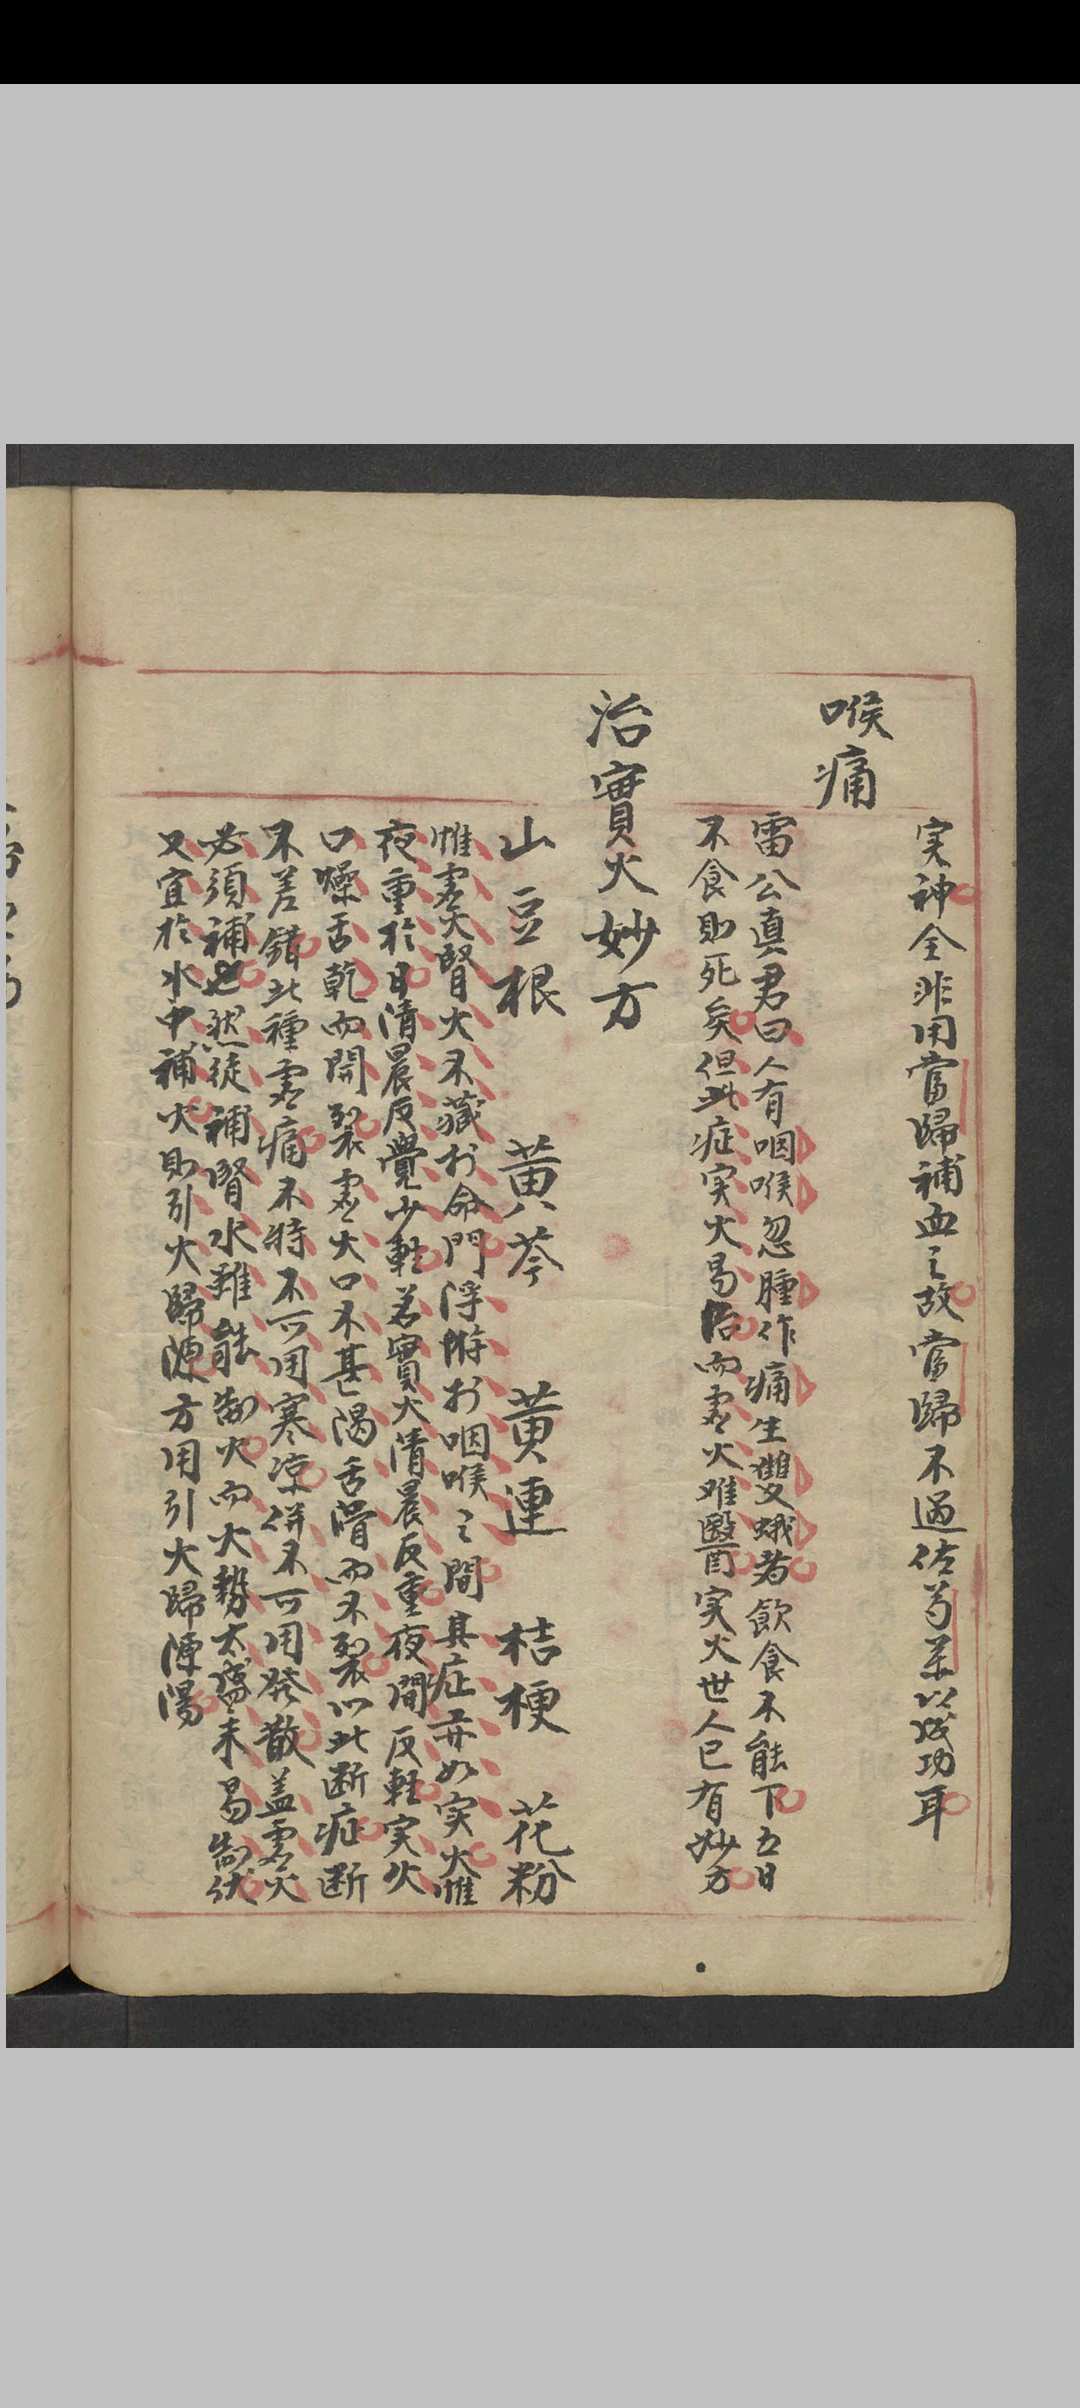 実神全非用當歸補血之故當歸不過佐芍薬以成功耳
喉痛
雷公真君曰人有咽喉忽腫作痛生雙蛾者飲食不能下五日
不食則死矣但此症実火易治而虛火难醫実火世人已有妙方
治實火妙方
山豆根 黃芩 黃連 桔梗 花粉
惟虛火腎火不藏扵命門浮游扵咽喉之間其症亦如実火惟
夜重於日清晨反覺少軽若實火清晨反重夜間反軽実火
口燥舌乾而開裂虛火口不甚渴舌滑而不裂以此断症断
不差錯此種虛痛不特不可用寒凉併不可用発散盖虛火
必須補也然徒補腎水雖能制火而火勢太盛未易制伏
又宜於水中補火則引火歸源方用引火歸源湯